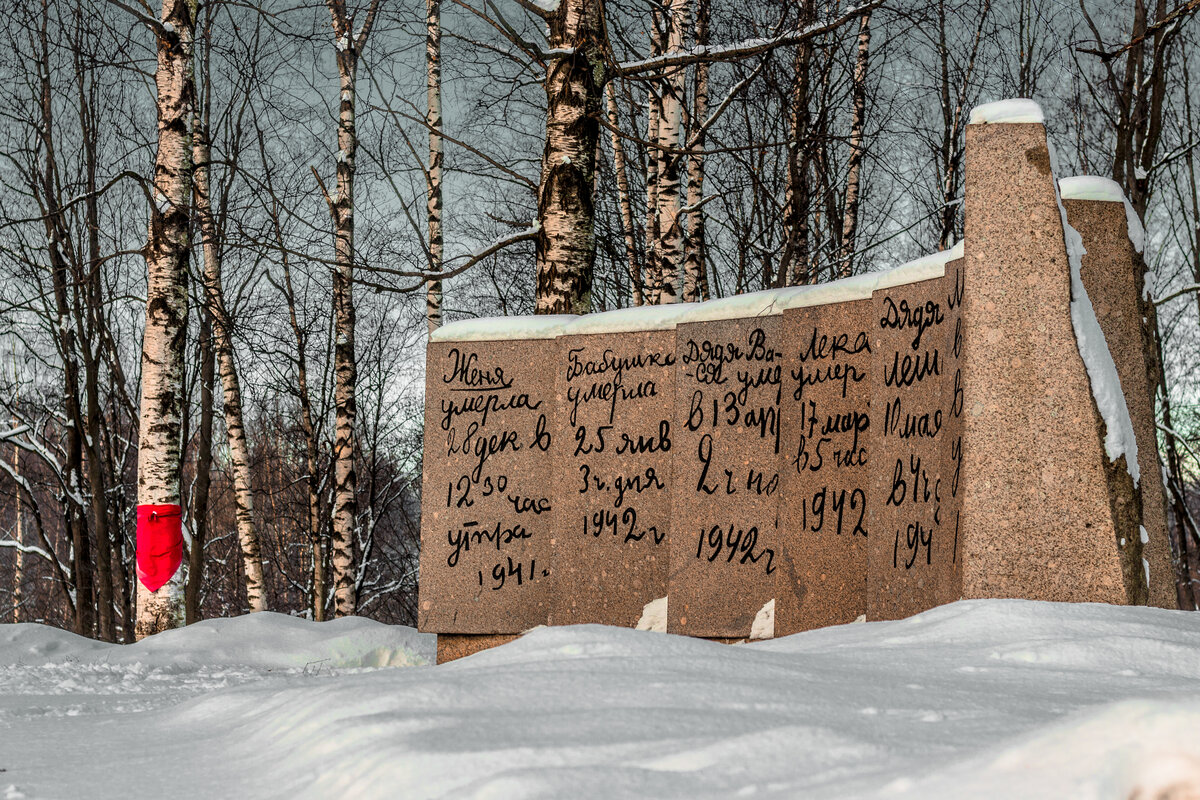 Женя
умерла
28 дек в
12 30 час
утра
1941.
Бабушка
умерла
25 янв
3 ч. дня
1942 г
Дядя Ва-
ся умер
в 13 ап
2 ч но
1942 г
Лека
умер
17 мар
в 5 час
1942
Дядя
Леш
10 мая
в 4 ч
194